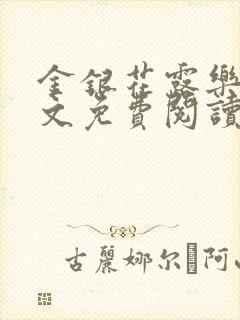 金銀花露樂
文免費閱讀
古麗娜尔·阿